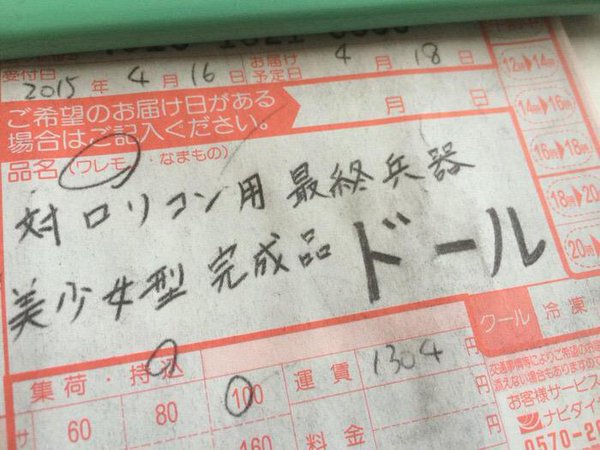 受付日 2015年 4月 16日 お届け予定日 4月 18日
12時▶14時
ご希望のお届け日がある
場合はご記入ください。
月 日
14時▶16時
品名(ワレモノ・なまもの)
16時▶18時
対ロリコン用 最終兵器
18時▶20
美少女型 完成品 ドール
20時▶
クール 冷凍
集荷・持込 運賃 1304円
サ 60 80 100
160 料金 円
お客様サービス
ナビダイヤ
0570-20